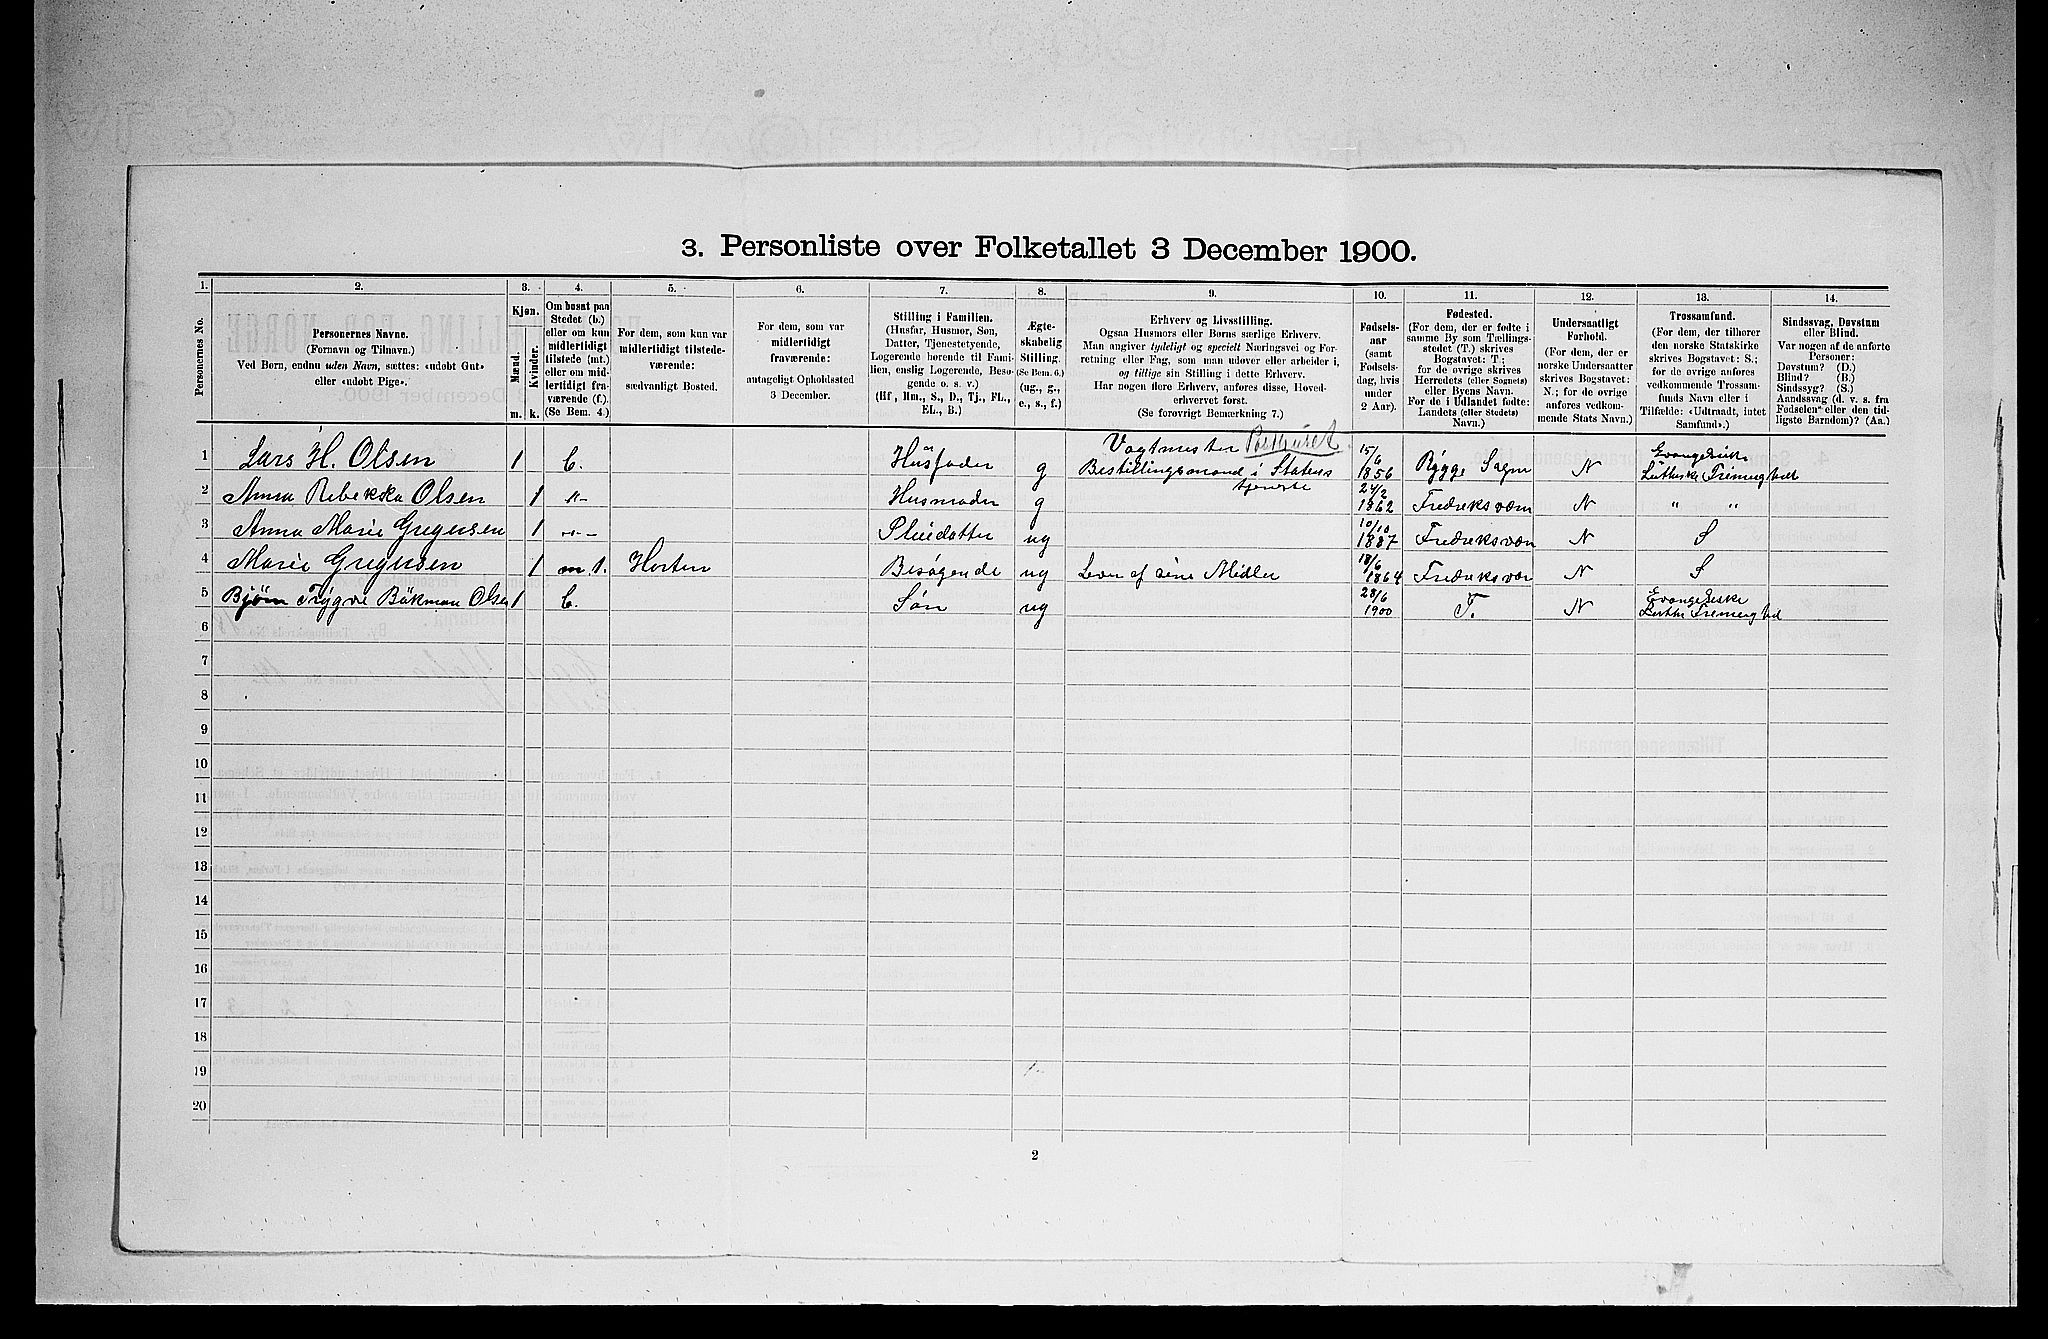 3. Personliste over Folketallet 3 December 1900.
1. 2. 3. 4. 5. 6. 7. 8. 9. 10. 11. 12. 13. 14.
Personernes No.
Personernes Navne.
(Fornavn og Tilnavn.)
Ved Børn, endnu uden Navn, sættes: «udøbt Gut»
eller «udøbt Pige».
Kjøn.
Mænd.
Kvinder.
m. k.
Om bosat paa
Stedet (b.)
eller om kun
midlertidigt
tilstede (mt.)
eller om mid-
lertidigt fra-
værende (f.).
(Se Bem. 4.)
For dem, som kun var
midlertidigt tilstede-
værende:
sædvanligt Bosted.
For dem, som var
midlertidigt
fraværende:
antageligt Opholdssted
3 December.
Stilling i Familien.
(Husfar, Husmor, Søn,
Datter, Tjenestetyende,
Logerende hørende til Fami-
lien, enslig Logerende, Besø-
gende o. s. v.)
(Hf, Hm., S., D., Tj., FL.,
EL., B.)
Ægte-
skabelig
Stilling.
(Se Bem. 6.)
(ug., g.,
e., s., f.)
Erhverv og Livsstilling.
Ogsaa Husmors eller Børns særlige Erhverv.
Man angiver tydeligt og specielt Næringsvei og For-
retning eller Fag, som man udøver eller arbeider i,
og tillige sin Stilling i dette Erhverv.
Har nogen flere Erhverv, anføres disse, Hoved-
erhvervet først.
(Se forøvrigt Bemærkning 7.)
Fødsels-
aar
(samt
Fødsels-
dag, hvis
under
2 Aar).
Fødested.
(For dem, der er fødte i
samme By som Tællings-
stedet (T.) skrives
Bogstavet: T;
for de øvrige skrives
Herredets (eller Sognets)
eller Byens Navn.
For de i Udlandet fødte:
Landets (eller Stedets)
Navn.)
Undersaatligt
Forhold.
(For dem, der er
norske Undersaatter
skrives Bogstavet:
N.; for de øvrige
anføres vedkom-
mende Stats Navn.)
Trossamfund.
(For dem, der tilhører
den norske Statskirke
skrives Bogstavet: S.;
for de øvrige anføres
vedkommende Trossam-
funds Navn eller i
Tilfælde: «Udtraadt, intet
Samfund».)
Sindssvag, Døvstum
eller Blind.
Var nogen af de anførte
Personer:
Døvstum? (D.)
Blind? (B.)
Sindssyg? (S.)
Aandssvag (d. v. s. fra
Fødselen eller den tid-
ligste Barndom)? (Aa.)
1 Lars H. Olsen 1 b. Husfader g Vagtmester Posthuset Bestillingsmand i Statens tjeneste 15/6 1856 Rygge Sogn N Evangelisk Lutherske Frimenighed
2 Anna Rebekka Olsen 1 "- Husmoder g 24/2 1862 Fredriksværn N " "
3 Anna Marie Gregersen 1 -"- Pleiedatter ug 10/10 1887 Fredriksværn N S
4 Marie Gregersen 1 m t. Horten Besøgende ug Lever af sine Midler 18/6 1864 Fredriksvær N S
5 Bjørn Trygve Bökman Olsen 1 b. Søn ug 28/6 1900 T. N Evangeliske Luthe Frimenighed
6
7
8
9
10
11
12
13
14
15
16
17
18
19
20
2